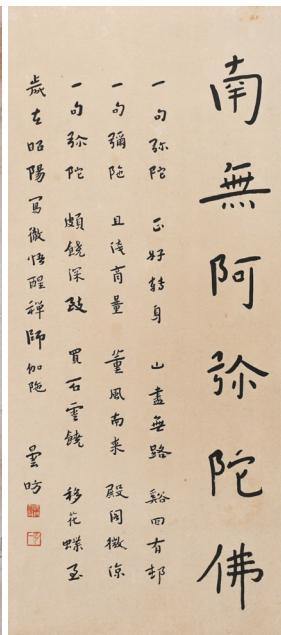 南無阿弥陀佛
一句弥陀 正好轉身 山盡無路 谿回有邨
一句彌陁 且 商量 薰風南来 殿閣微涼
一句弥陀 頗饒深致 買石雲饒 移花蝶至
歲在昭陽寫徹悟醒禪師伽陁 曇昉